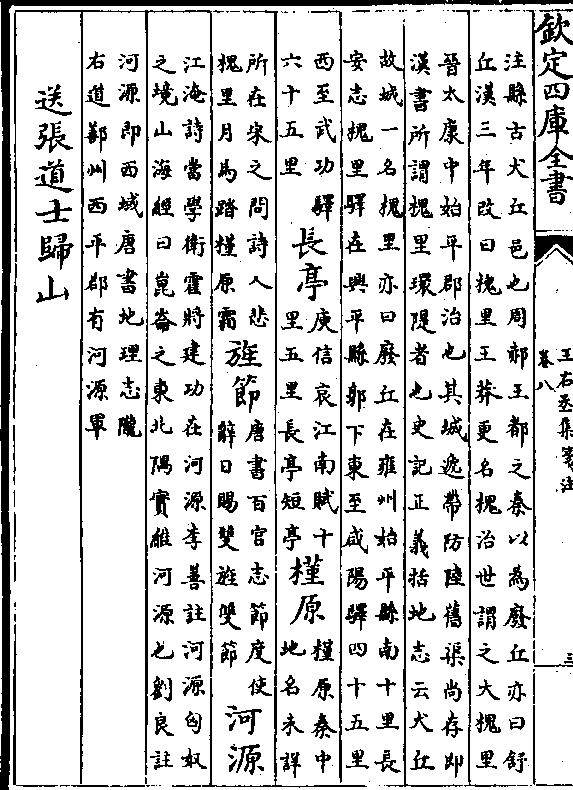 欽定四庫全書
王右丞集箋注
卷八
三
注縣古犬丘邑也周郝王都之秦以為廢丘亦曰舒
丘漢三年改曰槐里王莽更名槐治世謂之大槐里
晉太康中始平郡治也其城遞帶防陸舊渠尚存即
漢書所謂槐里環隄者也史記正義括地志云犬丘
故城一名槐里亦曰廢丘在雍州始平縣南十里長
安志槐里驛在興平縣郭下東至咸陽驛四十五里
西至武功驛
六十五里
長亭
庾信哀江南賦十
里五里長亭短亭
槿原
槿原秦中
地名未詳
所在宋之問詩人悲
槐里月馬踏槿原霜
旌節
唐書百官志節度使
辭日賜雙旌雙節
河源
江淹詩當學衛霍將建功在河源李善註河源匈奴
之境山海經曰崑崙之東北隅實維河源也劉良註
河源即西域唐書地理志隴
右道鄯州西平郡有河源軍
送張道士歸山